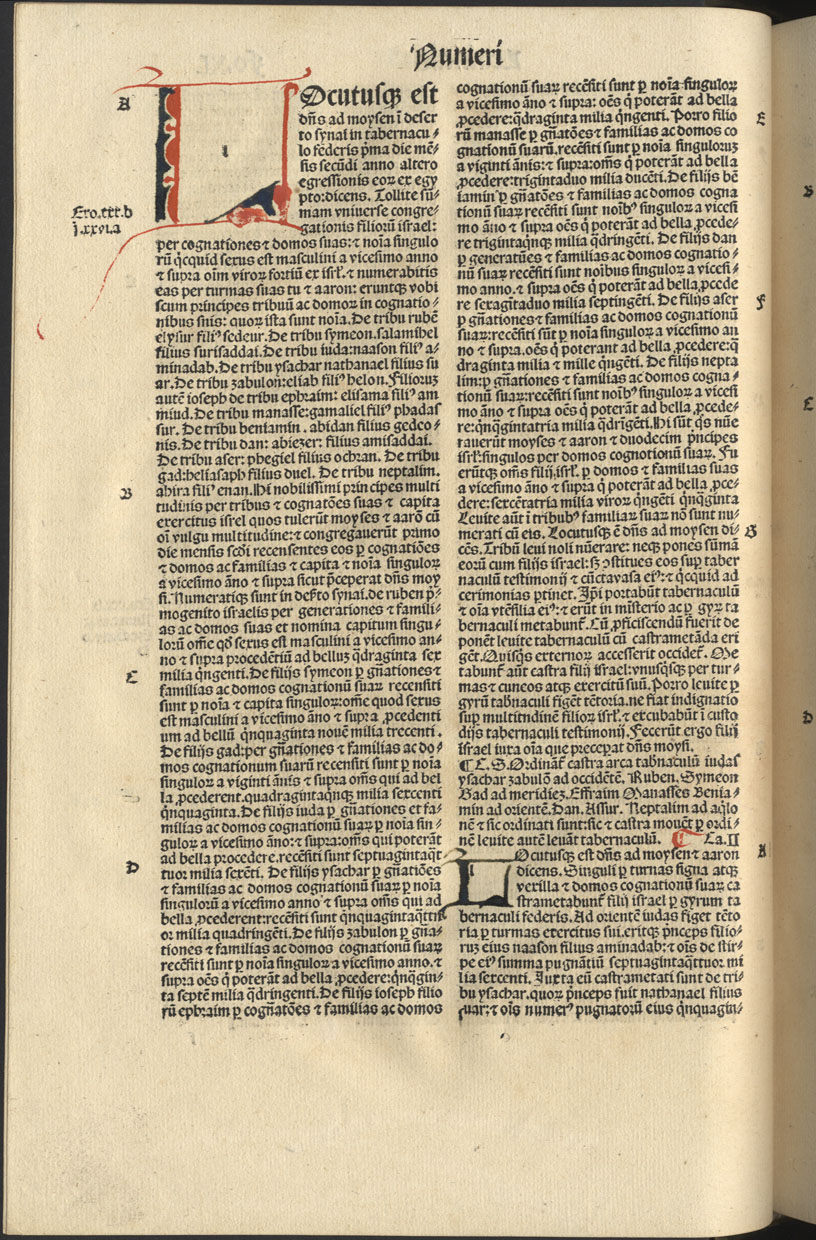 Numeri
A
Ocutusqꝫ est
dñs ad moysen ĩ deser
to synai in tabernacu⸗
lo federis p̃ma die mẽ⸗
sis secũdi anno altero
egressionis eoꝝ ex egy
pto:dicens. Tollite sũ⸗
mam vniverse congre⸗
gationis filiorũ israel:
Ero.xxx.b
ĩ.xxvi.a
per cognationes ⁊ domos suas:⁊ noĩa singulo
rũ qͥcquid sexus est masculini a vicesimo anno
⁊ supra oĩm viroꝝ fortiũ ex isrl̃.⁊ numerabitis
eas per turmas suas tu ⁊ aaron: eruntqꝫ vobi
scum principes tribuũ ac domoꝝ in cognatio⸗
nibus suis: quoꝝ ista sunt noĩa. De tribu rubẽ
elysur filiꝰ sedeur. De tribu symeon.salamihel
filius surisaddai. De tribu iuda:naason filiꝰ a⸗
minadab. De tribu ysachar nathanael filius su
ar. De tribu zabulon:eliab filiꝰ helon. Filioruꝫ
autẽ ioseph de tribu ephraim: elisama filiꝰ am
miud. De tribu manasse:gamaliel filiꝰ phadas
sur. De tribu beniamin. abidan filius gedeo⸗
nis. De tribu dan: abiezer: filius amisaddai.
De tribu aser: phegiel filius ochran. De tribu
gad:heliasaph filius duel. De tribu neptalim.
B
ahira filiꝰ enan. Hi nobilissimi principes multi
tudinis per tribus ⁊ cognatões suas ⁊ capita
exercitus isrel quos tulerũt moyses ⁊ aarõ cũ
oĩ vulgu multitudine:⁊ congregaverũt primo
die mensis scd̃i recensentes eos ꝑ cognatiões
⁊ domos ac familias ⁊ capita ⁊ noĩa singuloꝝ
a vicesimo ãno ⁊ supra sicut p̃ceperat dñs moy
si. Numeratiqꝫ sunt in deẽto synai.de ruben p̃⸗
mogenito israelis per generationes ⁊ famili⸗
as ac domos suas et nomina capitum singu⸗
lorũ om̃e qd̃ sexus est masculini a vicesimo an⸗
no ⁊ supra procedẽtiũ ad belluꝫ qͣdraginta sex
C
milia qͥngenti. De filijs symeon ꝑ gñationes ⁊
familias ac domos cognationũ suaꝝ recensiti
sunt ꝑ noĩa ⁊ capita singuloꝝ:om̃e quod sexus
est masculini a vicesimo ãno ⁊ supra ꝓcedenti
um ad bellũ qͥnquaginta nouẽ milia trecenti.
De filijs gad:per gñationes ⁊ familias ac do⸗
mos cognationum suarũ recensiti sunt ꝑ noĩa
singuloꝝ a viginti ãnis ⁊ supra om̃s qui ad bel
la ꝓcederent.quadragintaqͥnqꝫ milia sexcenti
qͥnquaginta. De filijs iuda ꝑ gñationes et fa⸗
milias ac domos cognationũ suaꝝ ꝑ noĩa sin⸗
guloꝝ a vicesimo ãno:⁊ supra:om̃s qui poterãt
ad bella procedere.recẽsiti sunt septuagintaqͣt
D
tuor milia sexẽti. De filijs ysachar ꝑ gñatiões
⁊ familias ac domos cognationũ suaꝝ ꝑ noĩa
singuloꝝ a vicesimo ãno ⁊ supra om̃s qui ad
bella ꝓcederent:recẽsiti sunt qͥnquagintaqͣttu
or milia quadringẽti. De filijs zabulon ꝑ gña⸗
tiones ⁊ familias ac domos cognationũ suaꝝ
recẽsiti sunt ꝑ noĩa singuloꝝ a vicesimo anno.⁊
supra oẽs q̃ poterãt ad bella ꝓcedere:qͥnqͣgin⸗
ta septẽ milia qͣdringenti. De filijs ioseph filio
rũ ephraim ꝑ cogñatões ⁊ familias ac domos
cognationũ suaꝝ recẽsiti sunt ꝑ noĩa singuloꝝ
a vicesimo ãno ⁊ supra: oẽs q̃ poterãt ad bella
ꝓcedere:qͣdraginta milia qͥngenti. Porro filio
E
rũ manasse ꝑ gñatões ⁊ familias ac domos co
gnationũ suarũ.recẽsiti sunt ꝑ noĩa singuloruꝫ
a viginti ãnis:⁊ supra:om̃s q̃ poterãt ad bella
ꝓcedere:trigintaduo milia ducẽti. De filijs bẽ
iamin ꝑ gñatões ⁊ familias ac domos cogna
tionũ suaꝝ recẽsiti sunt noĩbꝰ singuloꝝ a vicesi
mo ãno ⁊ supra oẽs q̃ poterãt ad bella ꝓcede⸗
re trigintaqͥnqꝫ milia qͣdringẽti. De filijs dan
ꝑ generatũes ⁊ familias ac domos cognatio⸗
nũ suaꝝ recẽsiti sunt noĩbus singuloꝝ a vicesi⸗
mo anno.⁊ supra oẽs q̃ poterãt ad bella ꝓcede
re sexagĩtaduo milia septingẽti. De filijs aser
F
ꝑ gñationes ⁊ familias ac domos cognationũ
suaꝝ:recẽsiti sũt ꝑ noĩa singuloꝝ a vicesimo an
no ⁊ supra.oẽs q̃ poterant ad bella ꝓcedere:qͣ
draginta milia ⁊ mille qͥngẽti. De filijs nepta
lim:ꝑ gñationes ⁊ familias ac domos cogna⸗
tionũ suaꝝ:recẽsiti sunt noĩbꝰ singuloꝝ a vicesi
mo ãno ⁊ supra oẽs q̃ poterãt ad bella ꝓcede⸗
re:qͥnqͣgintatria milia qͣdrĩgẽti. Hi sũt qͦs nũe
rauerũt moyses ⁊ aaron ⁊ duodecim p̃ncipes
isrl̃:singulos per domos cognotionũ suaꝝ. Fu
erũtqꝫ om̃s filij.isrl̃. ꝑ domos ⁊ familias suas
a vicesimo ãno ⁊ supra q̃ poterãt ad bella ꝓce⸗
dere:sexcẽtatria milia viroꝝ qͥngẽti qͥnqͣginta
Leuite aũt ĩ tribubꝰ familiaꝝ suaꝝ nõ sunt nu⸗
merati cũ eis. Locutusqꝫ ẽ dñs ad moysen di⸗
G
cẽs. Tribũ leui noli nũerare: neqꝫ pones sũmã
eorũ cum filijs israel:sꝫ ꝯstitues eos suꝑ taber
naculũ testimonij ⁊ cũctavasa eiꝰ:⁊ qͥcquid ad
cerimonias ꝑtinet. Ip̃i portabũt tabernaculũ
⁊ oĩa vtẽsilia eiꝰ:⁊ erũt in mĩsterio ac ꝑ gyꝝ ta
bernaculi metabunt̃. Cũ ꝓficiscendũ fuerit de
ponẽt leuite tabernaculũ cũ castrametãda eri
gẽt. Quisqͥs externoꝝ accesserit occidet̃. Me
tabunt̃ aũt castra filij israel:vnusqͥsqꝫ per tur⸗
mas ⁊ cuneos atqꝫ exercitũ suũ. Porro leuite ꝑ
gyrũ tab̃naculi figẽt tẽtoria.ne fiat indignatio
suꝑ multitndinẽ filioꝝ isrl̃.⁊ excubabũt ĩ custo
dijs tabernaculi testimonij. Fecerũt ergo filij
israel iuxa oĩa que preceperat dñs moysi.
¶ C. S. Ordinãt̃ castra arca tabnaculũ iudas
ysachar zabulõ ad occidẽtẽ. Ruben. Symeon
Gad ad meridieꝫ. Effraim Manasses Benia⸗
min ad orientẽ. Dan. Assur. Neptalim ad aqͥlo
nẽ ⁊ sic ordinati sunt:sic ⁊ castra mouẽt ꝑ ordi⸗
nẽ leuite autẽ leuãt tabernaculũ. ¶ Ca.II
Ocutusqꝫ est dñs ad moysen ⁊ aaron
A
dicens. Singuli ꝑ turnas signa atqꝫ
vexilla ⁊ domos cognationũ suaꝝ ca
strametabunt̃ filij israel ꝑ gyrum ta
bernaculi federis. Ad orientẽ iudas figet tẽto
ria ꝑ turmas exercitus sui.eritqꝫ p̃nceps filio⸗
ruꝫ eius naason filius aminadab:⁊ oĩs de stir⸗
pe eiꝰ summa pugnãtiũ septuagintaqͣttuor mi
lia sexcenti. Juxta eũ castrametati sunt de tri⸗
bu ysachar.quoꝝ p̃nceps fuit nathanael filius
suar:⁊ oĩs numerꝰ pugnatorũ eius qͥnquagin⸗
B
C
D